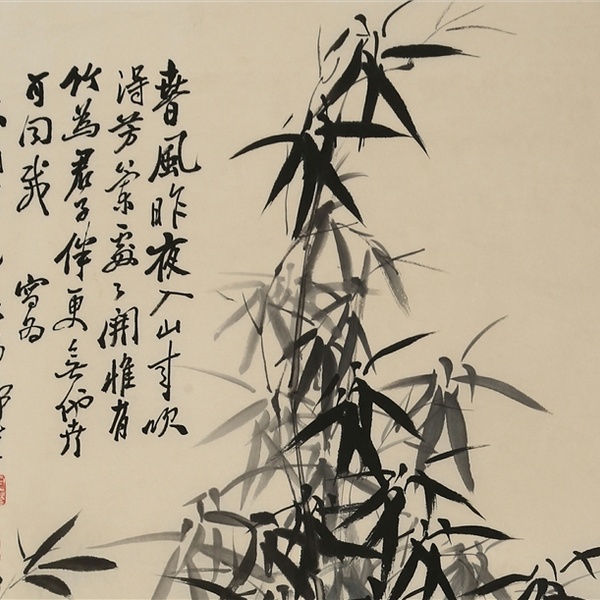 春風昨夜入山來吹
得芳蘭處々開惟有
竹為君子伴更無他卉
可同栽 寫為